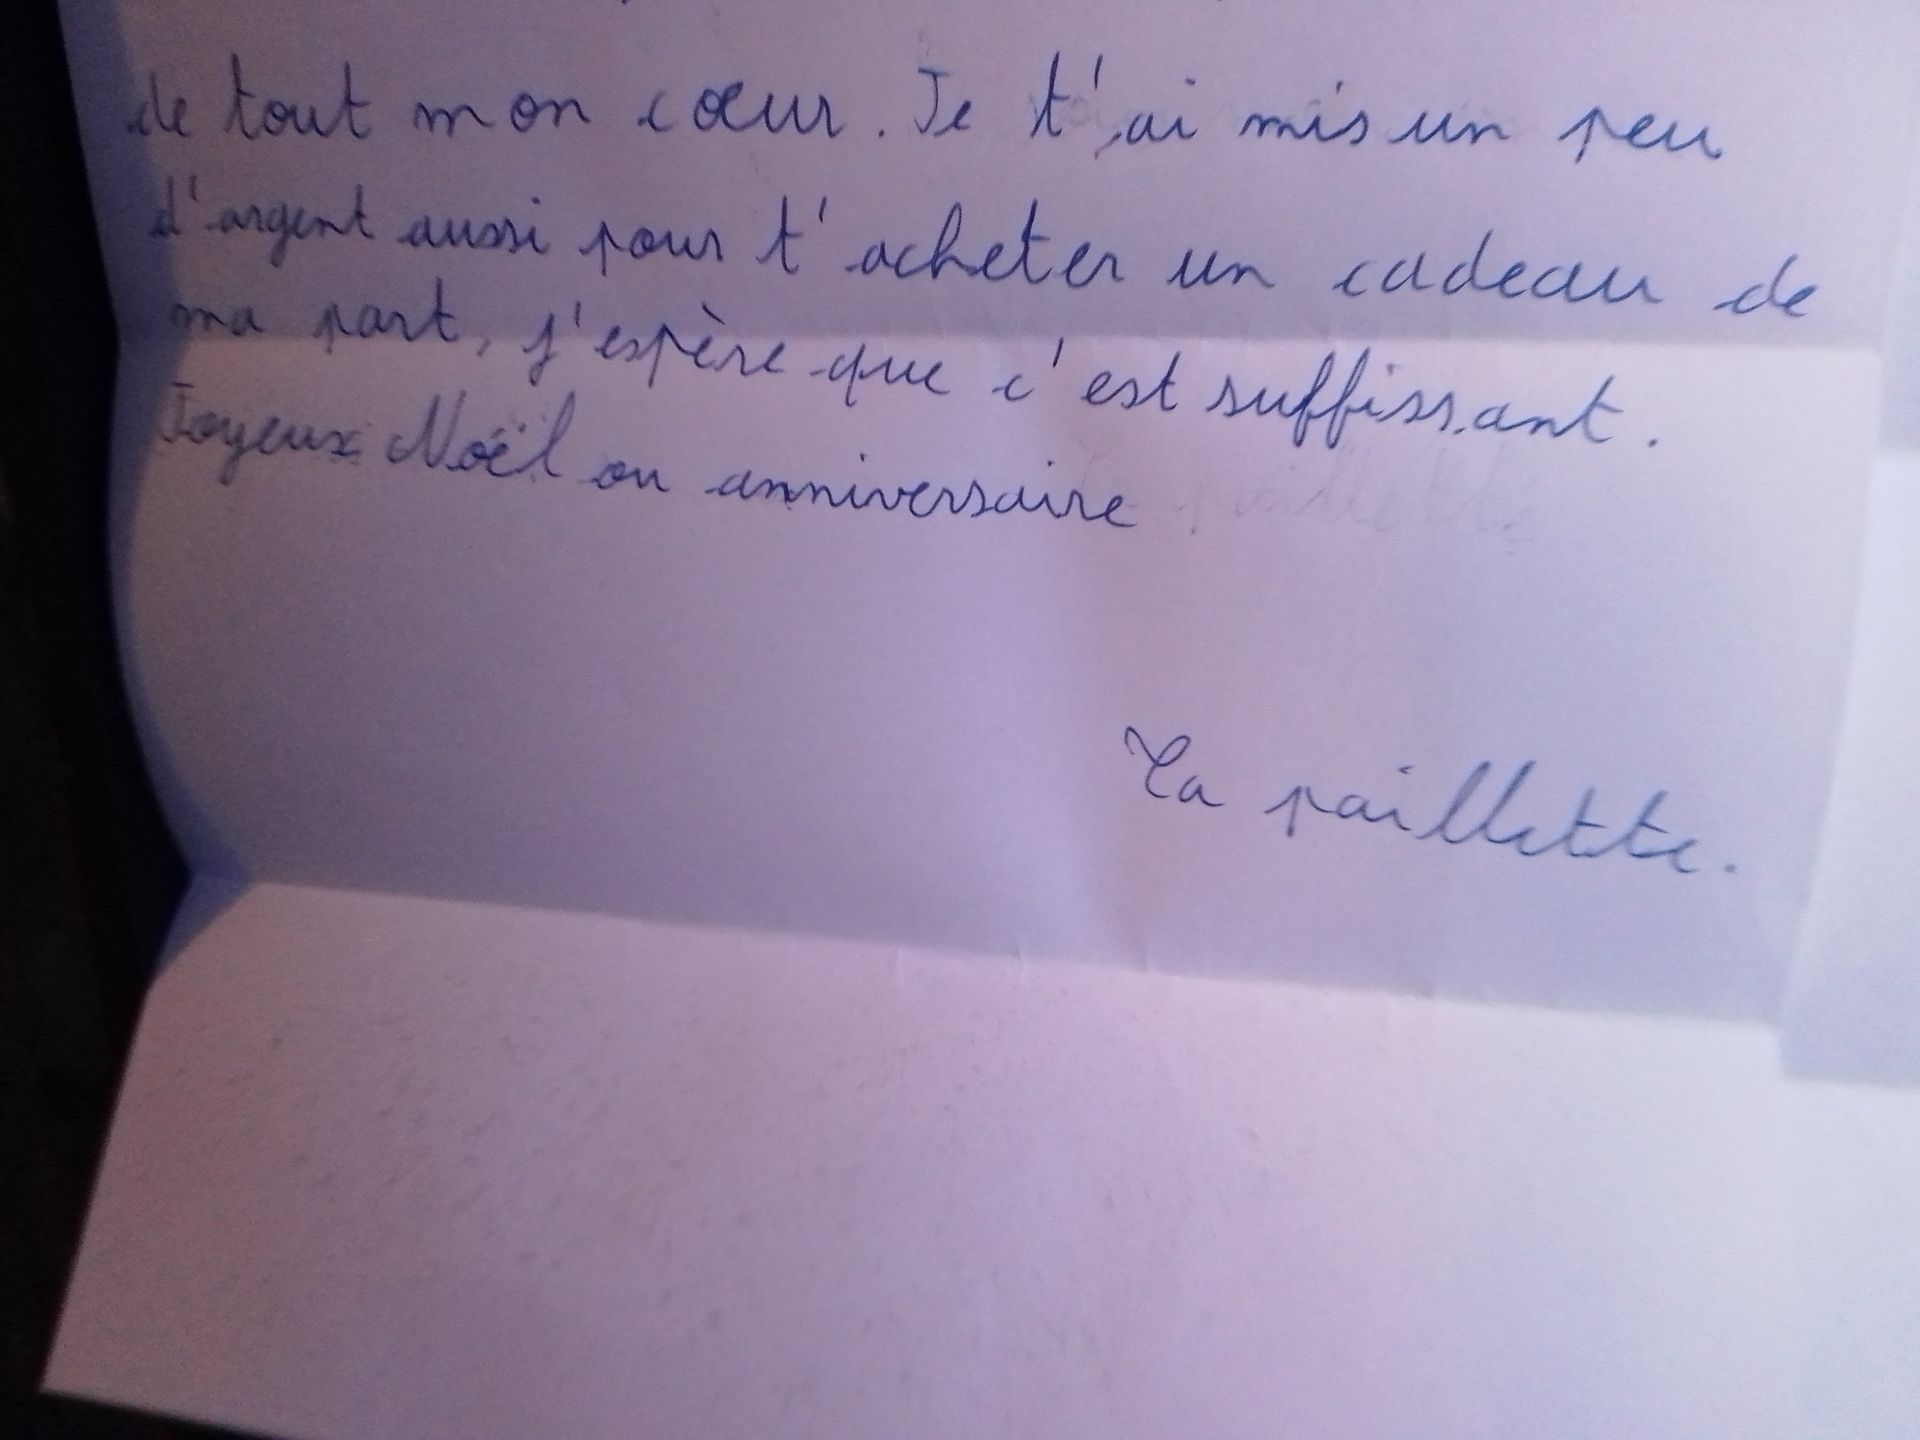 de tout mon cœur. Je t'ai mis un peu
d'argent aussi pour t'acheter un cadeau de
ma part, j'espère que c'est suffissant.
Joyeux Noël ou anniversaire
Ta paillette.